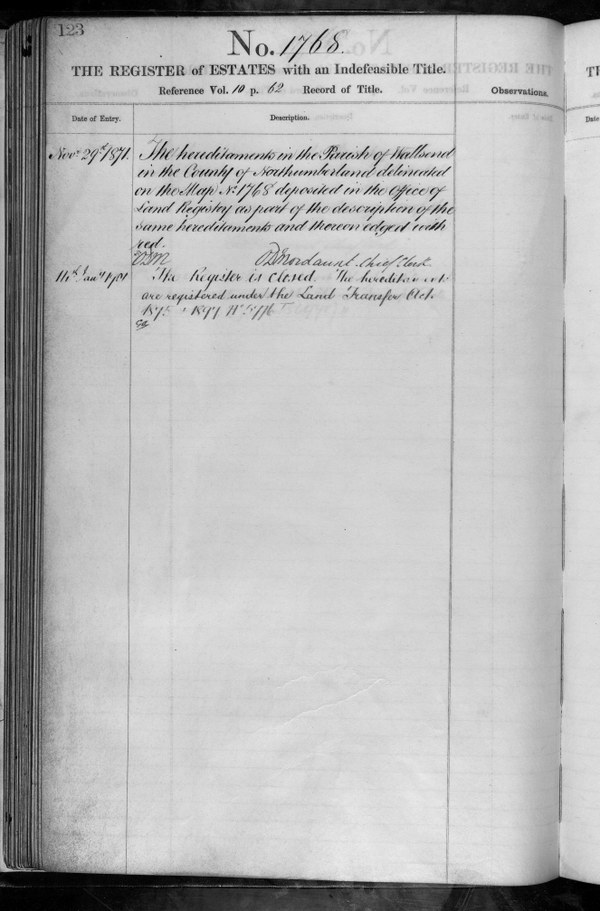 123
No. 1768.
THE REGISTER of ESTATES with an Indefeasible Title.
Reference Vol. 10 p. 62 Record of Title.
Observations.
Date of Entry.
Description.
Novr. 29th 1871.
The hereditaments in the Parish of Wallsend
in the County of Northumberland delineated
on the Map No. 1768 deposited in the Office of
Land Registry as part of the description of the
same hereditaments and thereon edged with
red.
Mordaunt Chief Clerk
14th Jany 1901
The Register is closed. The hereditaments
are registered under the Land Transfer Act
1875 1897 No.
Date